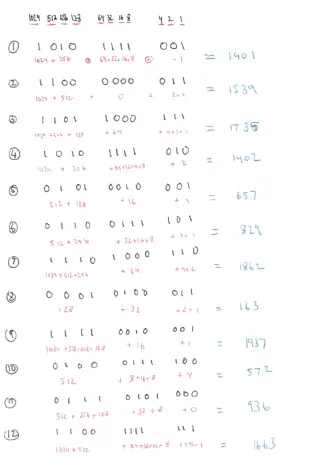 1024 512 256 128 64 32 16 8 4 2 1
① 1 0 1 0 1 1 1 1 0 0 1 = 1401
1024 + 256 + 64+32+16+8 + 1
② 1 1 0 0 0 0 0 0 0 1 1 = 1539
1024 + 512 + 0 + 2+1
③ 1 1 0 1 1 0 0 0 1 1 1 = 1735
1024+512 + 128 + 64 + 4+2+1
④ 1 0 1 0 1 1 1 1 0 1 0 = 1402
1024 + 256 +64+32+16+8 + 2
⑤ 0 1 0 1 0 0 1 0 0 0 1 = 657
512 + 128 + 16 + 1
⑥ 0 1 1 0 0 1 1 1 1 0 1 = 829
512 + 256 + 32+16+8 + 4+1
⑦ 1 1 1 0 1 0 0 0 1 1 0 = 1862
1024+512+256 + 64 + 4+2
⑧ 0 0 0 1 0 1 0 0 0 1 1 = 163
128 + 32 + 2+1
⑨ 1 1 1 1 0 0 1 0 0 0 1 = 1937
1024 +512+256+128 + 16 + 1
⑩ 0 1 0 0 0 1 1 1 1 0 0 = 572
512 + 32+16+8 + 4
⑪ 0 1 1 1 0 1 0 1 0 0 0 = 936
512 + 256 + 128 + 32 + 8 + 0
⑫ 1 1 0 0 1 1 1 1 1 1 1 = 1663
1024 + 512 + 64+32+16+8 + 4+2+1